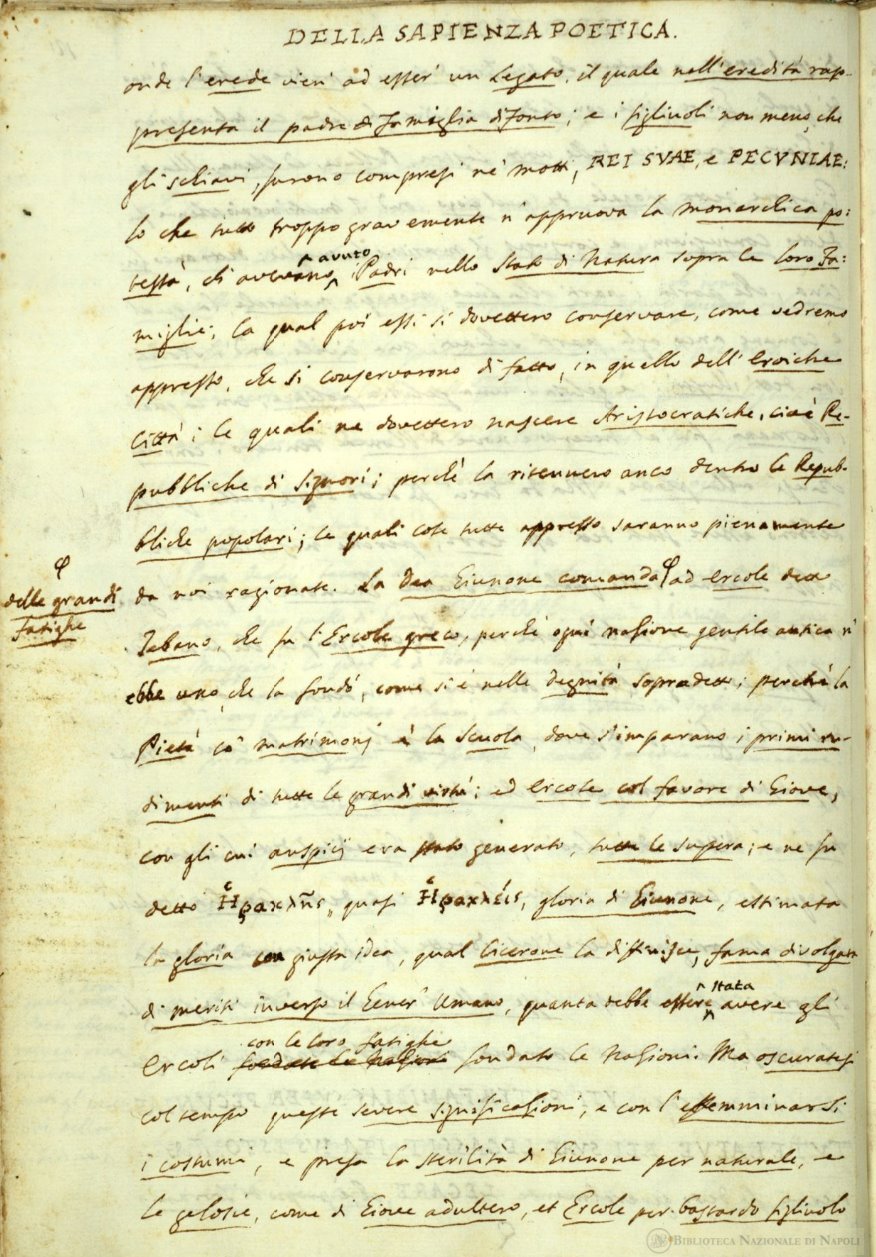 DELLA SAPIENZA POETICA.
onde l'erede vien ad esser' un Legato, il quale nell'eredità rap-
presenta il padre di famiglia difonto; e i figliuoli non meno, che
gli schiavi, furono compresi ne' motti, REI SVAE, e PECVNIAE:
lo che tutto troppo gravemente n'appruova la monarchica po:
testà, ch'avevano ^avuto i Padri nello Stato di Natura sopra le loro Fa:
miglie; la qual poi essi si dovettero conservare, come vedremo
appresso, che si conservarono di fatto, in quello dell'eroiche
Città; le quali ne dovettero nascere Aristocratiche, cioè Re-
pubbliche di Signori; perchè la ritennero anco dentro le Repub-
bliche popolari; le quali cose tutte appresso saranno pienamente
φ
delle grandi
fatighe
da noi ragionate. La Dea Giunone comanda φ ad Ercole detto
Tebano, che fu l'Ercole greco, perchè ogni nasione gentile antica n'
ebbe uno, che la fondò, come si è nelle degnità sopradetto; perchè la
Pietà co' matrimonj è la scuola, dove s'imparano i primi ru-
dimenti di tutte le grandi virtù; ed Ercole col favore di Giove,
con gli cui auspicij era stato generato, tutte le supera; e ne fu
detto Ἡρακλῆς, quasi Ἥρακλέις, gloria di Giunone, estimata
la gloria con giusta idea, qual Cicerone la diffinisce, fama divolgata
di meriti inverso il Gener' Umano, quanta debbe essere ^stata avere gli
Ercoli con le loro fatighe fondato le Nasioni. Ma oscuratesi
col tempo queste severe significasioni, e con l'effemminarsi
i costumi, e presa la sterilità di Giunone per naturale, e
le gelosie, come di Giove adultero, et Ercole per bastardo figliuolo
BIBLIOTECA NAZIONALE DI NAPOLI